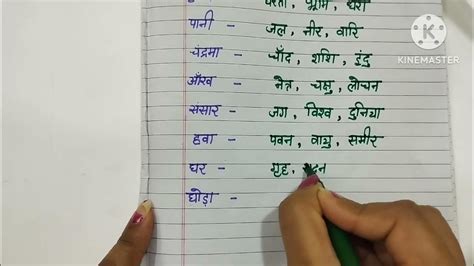 धरती, भूमि, धरा
KINEMASTER
पानी - जल, नीर, वारि
चंद्रमा - चाँद, शशि, इंदु
आँख - नेत्र, चक्षु, लोचन
संसार - जग, विश्व, दुनिया
हवा - पवन, वायु, समीर
घर - गृह,
घोड़ा -